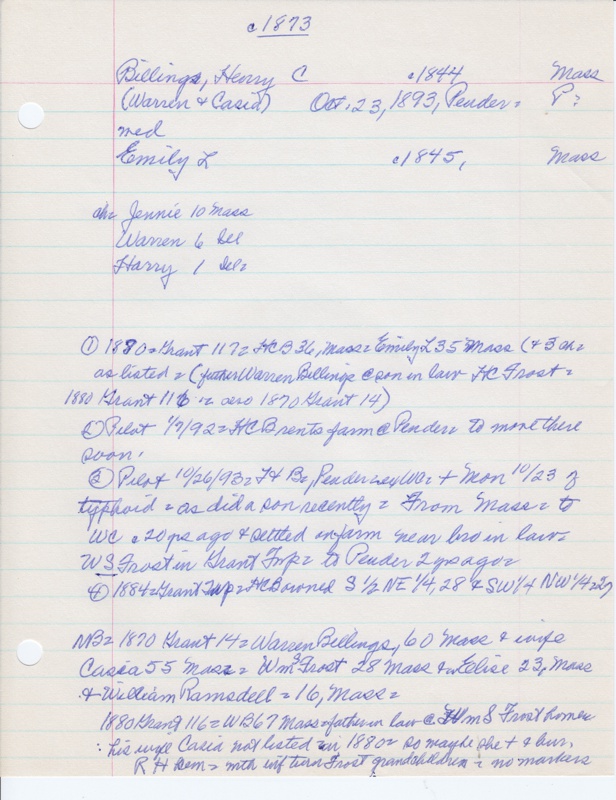 c1873
Billings, Henry C c1844 Mass
(Warren & Casia) Oct. 23, 1893, Pender = P?
med
Emily L c1845, Mass
ch= Jennie 10 Mass
Warren 6 Del
Harry 1 Del=
① 1880=Grant 117=HCB 36, Mass=Emily L 35 Mass (+3 ch=
as listed=(father Warren Billings @ son in law HC Frost=
1880 Grant 116 = also 1870 Grant 14)
② Pilot 1/7/92=HCB rents farm @ Pender= to move there
soon.
③ Pilot 10/26/93=HB=, Pender Wa= + Mon 10/23 of
typhoid = as did a son recently = From Mass= to
WC c20 yrs ago & settled on farm near bro in law=
WS Frost in Grant Twp= to Pender 2 yrs ago=
④ 1884=Grant Twp=HCB owned S 1/2 NE 1/4, 28 & SW 1/4 NW 1/4=27
NB= 1870 Grant 14=Warren Billings, 60 Mass & wife
Casia 55 Mass= Wm S Frost 28 Mass & Elise 23, Mass
& William Ramsdell=16, Mass=
1880 Grant 116=WB 67 Mass=father in law @ Wm S Frost home=
: his wife Casia not listed in 1880= so maybe she + & bur.
R H Cem= with inf twin Frost grandchildren = no markers